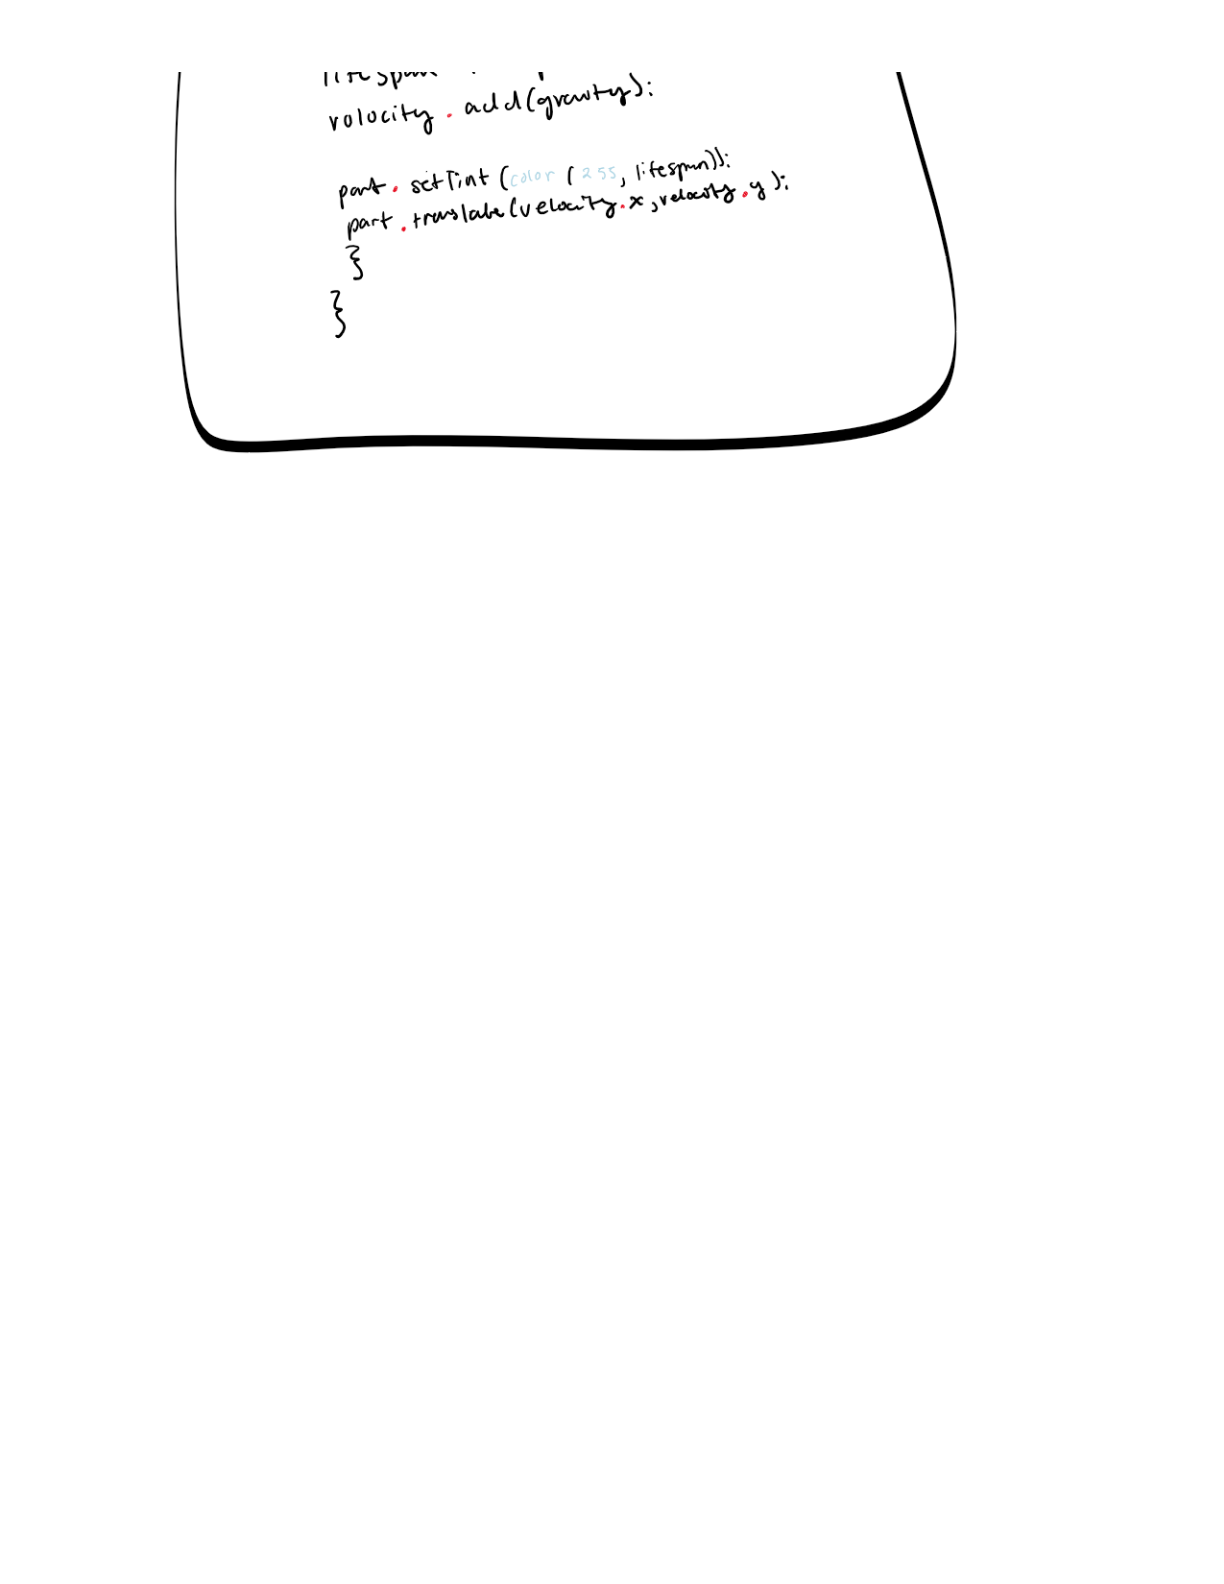 lifespan
volocity . add(gravity);
part. setTint (color ( 255, lifespan));
part .translate(velocity.x ,velocity.y );
}
}